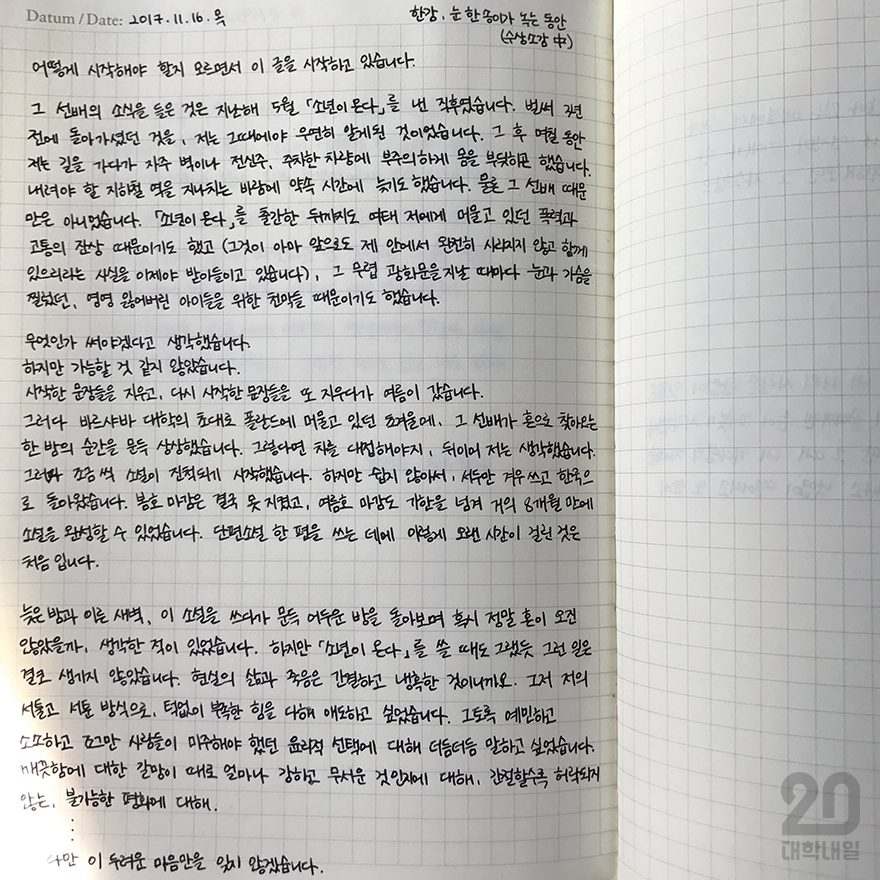 Datum / Date: 2017. 11. 16. 목
한강, 눈 한 송이가 녹는 동안
(수상소감 中)
어떻게 시작해야 할지 모르면서 이 글을 시작하고 있습니다.
그 선배의 소식을 들은 것은 지난해 5월 「소년이 온다」를 낸 직후였습니다. 벌써 3년
전에 돌아가셨던 것을, 저는 그때에야 우연히 알게된 것이었습니다. 그 후 여월 동안
저는 길을 가다가 자주 벽이나 전신주, 주차한 차량에 부주의하게 몸을 부딪히곤 했습니다.
내려야 할 지하철 역을 지나치는 바람에 약속 시간에 늦기도 했습니다. 물론 그 선배 때문
만은 아니었습니다. 「소년이 온다」를 출간한 뒤까지도 여태 저에게 머물고 있던 폭력과
고통의 잔상 때문이기도 했고 (그것이 아마 앞으로도 제 안에서 완전히 사라지지 않고 함께
있으리라는 사실을 이제야 받아들이고 있습니다), 그 무렵 광화문을 지날 때마다 눈과 가슴을
찔렀던, 영영 잃어버린 아이들을 위한 천막들 때문이기도 했습니다.
무엇인가 써야겠다고 생각했습니다.
하지만 가능할 것 같지 않았습니다.
시작한 문장들을 지우고, 다시 시작한 문장들을 또 지우다가 여름이 갔습니다.
그러다 바르샤바 대학의 초대로 폴란드에 머물고 있던 초겨울에, 그 선배가 혼으로 찾아오는
한 밤의 순간을 문득 상상했습니다. 그렇다면 차를 대접해야지, 뒤이어 저는 생각했습니다.
그러며 조금씩 소설이 진척되기 시작했습니다. 하지만 쉽지 않아서, 서두만 겨우 쓰고 한국으
로 돌아왔습니다. 봄호 마감은 결국 못 지켰고, 여름호 마감도 기한을 넘겨 거의 8개월 만에
소설을 완성할 수 있었습니다. 단편소설 한 편을 쓰는 데에 이렇게 오랜 시간이 걸린 것은
처음 입니다.
늦은 밤과 이른 새벽, 이 소설을 쓰다가 문득 어두운 방을 돌아보며 혹시 정말 혼이 오진
않았을까, 생각한 적이 있었습니다. 하지만 「소년이 온다」를 쓸 때도 그랬듯 그런 일은
결코 생기지 않았습니다. 현실의 삶과 죽음은 간결하고 냉혹한 것이니까요. 그저 저의
서툴고 서툰 방식으로, 턱없이 부족한 힘을 다해 애도하고 싶었습니다. 그토록 예민하고
소소하고 조그만 사람들이 마주해야 했던 윤리적 선택에 대해 더듬더듬 말하고 싶었습니다.
깨끗함에 대한 갈망이 때로 얼마나 강하고 무서운 것인지에 대해, 간절할수록 허락되지
않는, 불가능한 평화에 대해.
⋮
다만 이 두려운 마음만을 잊지 않겠습니다.
20
대학내일